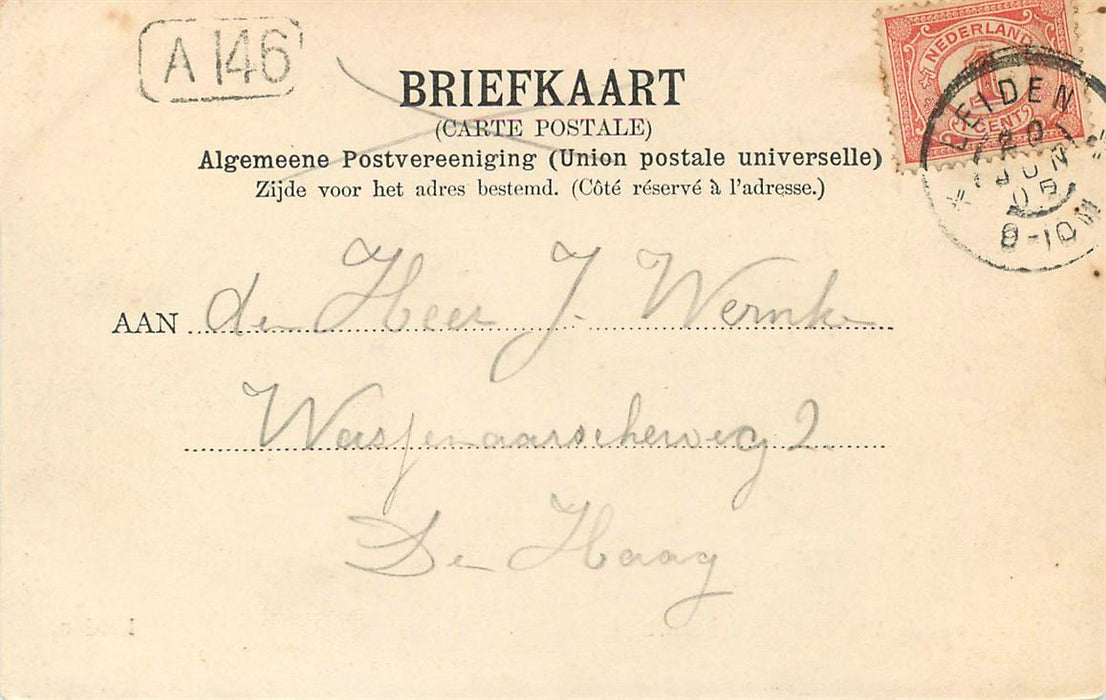 A 146
NEDERLAND
1
CENT
LEIDEN
20
JUN
05
8-10
BRIEFKAART
(CARTE POSTALE)
Algemeene Postvereeniging (Union postale universelle)
Zijde voor het adres bestemd. (Côté réservé à l'adresse.)
AAN den Heer J. Wernke
Wassenaarscheweg 2.
Den Haag